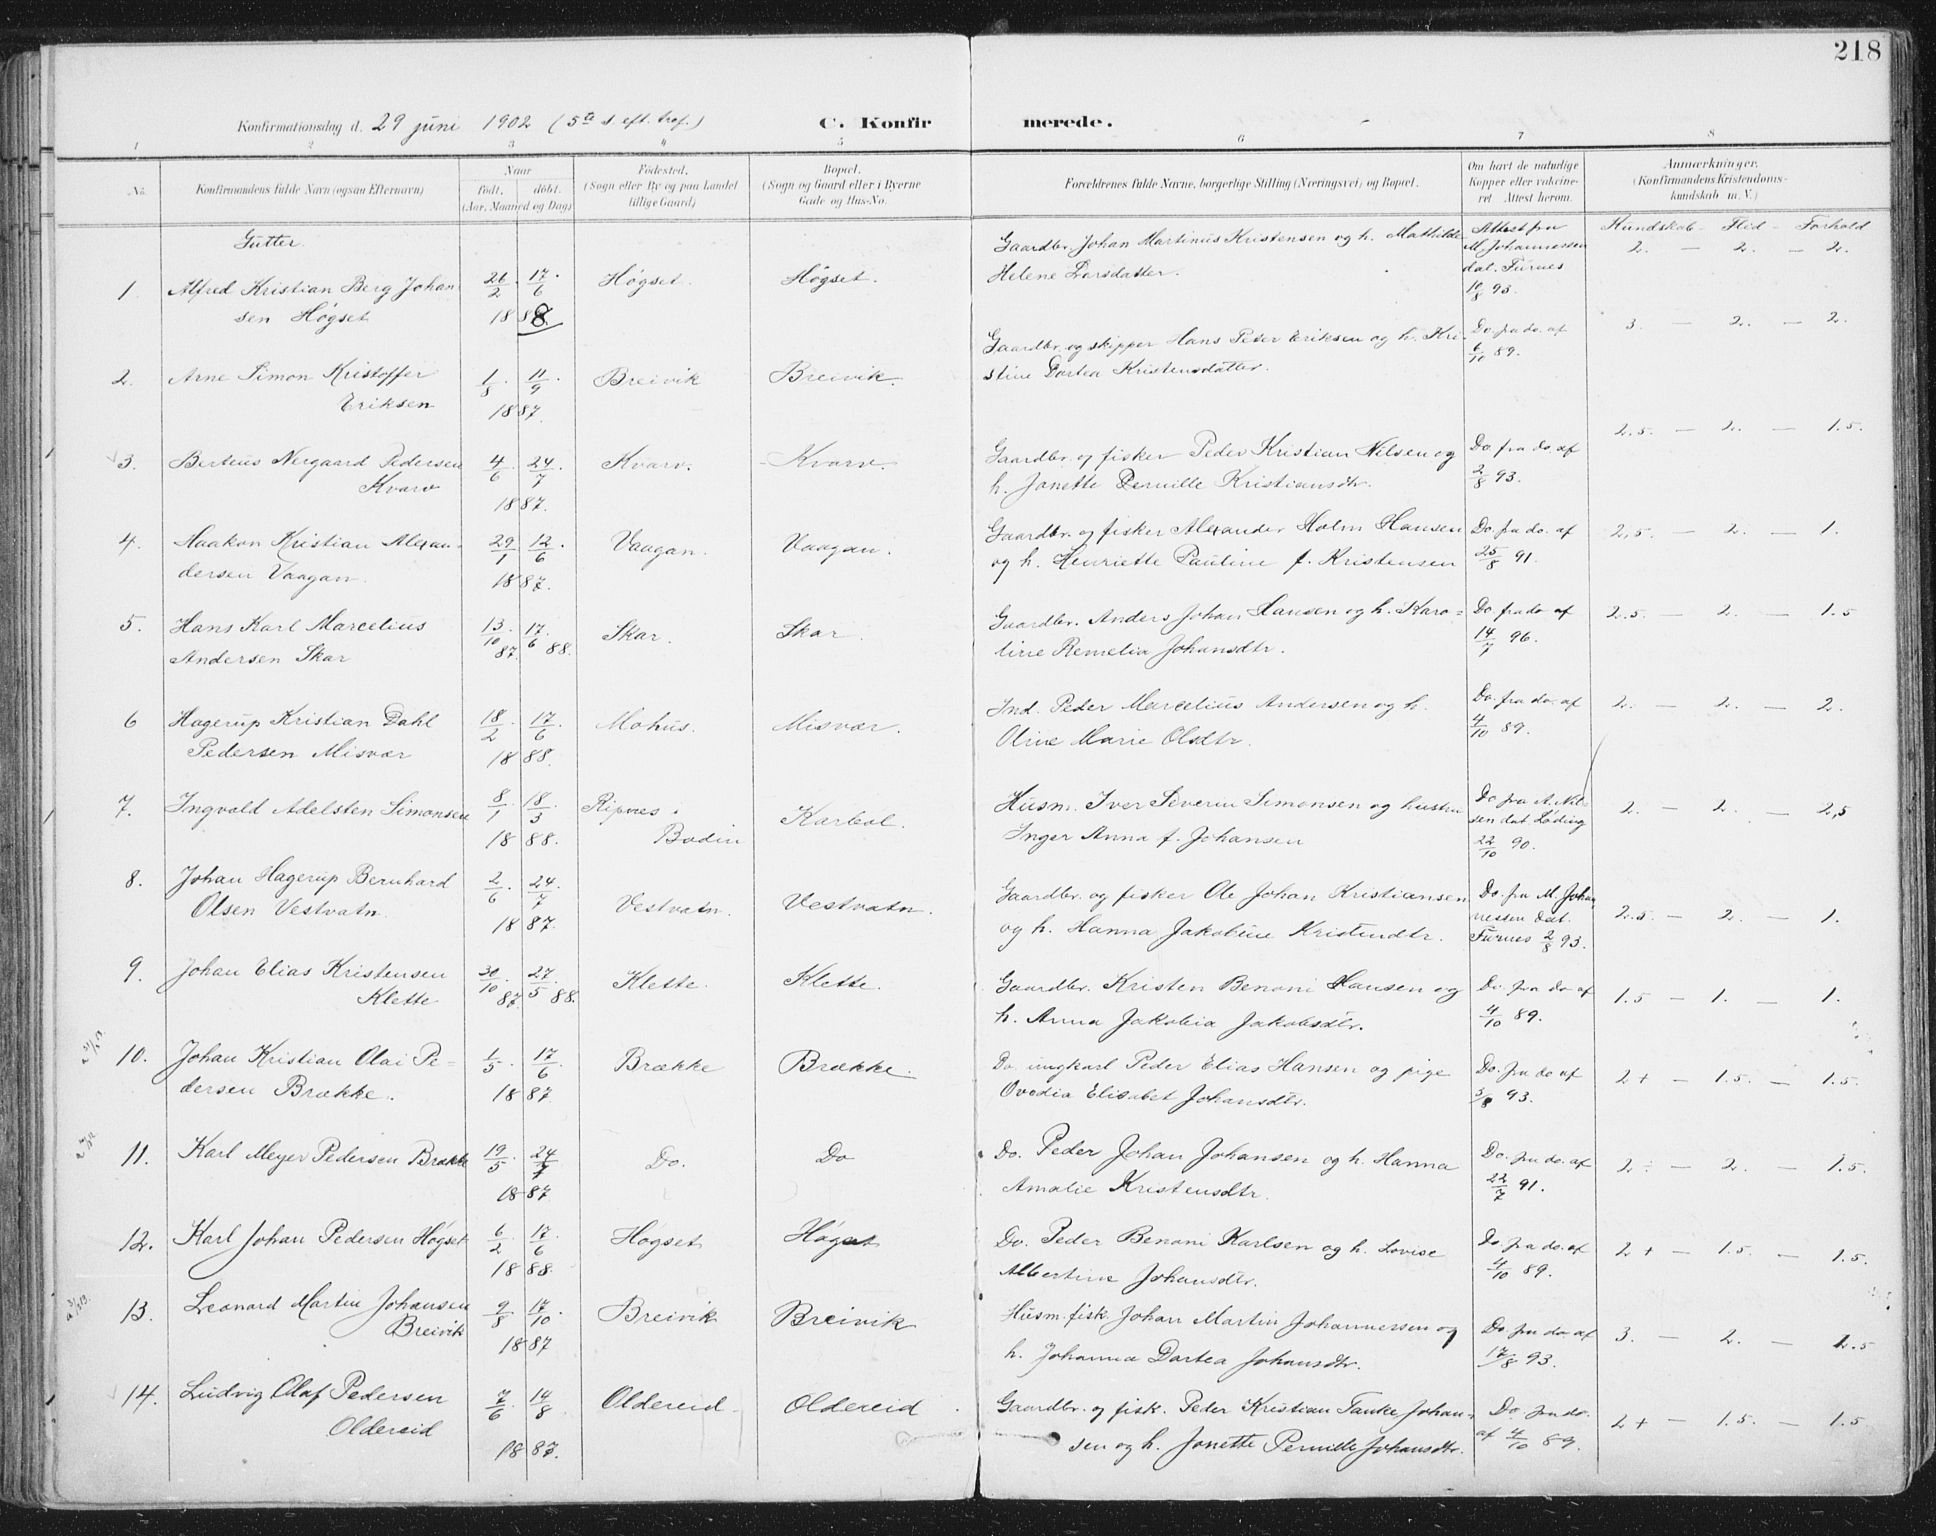 218
Konfirmationsdag d. 29 juni 1902 (5te s. eft. tref.) C. Konfirmerede.
1 2 3 4 5 6 7 8
No. Konfirmandens fulde Navn (ogsaa Efternavn) Naar født. døbt. (Aar, Maaned og Dag) Fødested. (Sogn eller By og paa Landet tillige Gaard) Bopæl. (Sogn og Gaard eller i Byerne Gade og Hus-No. Forældrenes fulde Navne, borgerlige Stilling (Næringsvei) og Bopæl. Om havt de naturlige Kopper eller vakcineret. Attest herom. Anmærkninger. (Konfirmandens Kristendomskundskab m. V.)
Gutter. Kundskab - Flid - Forhold
1 Alfred Kristian Berg Johan 26/2 17/6 Høgset. Høgset. Gaardbr. Johan Martinus Kristensen og h. Mathilde Attest fra M. Johannessen 2. — 2. — 2.
sen Høgset 1888 Helene Larsdatter. dat. Furnes 10/8 93.
2. Arne Simon Kristoffer 1/8 11/9 Breivik Breivik. Gaardbr. og skipper Hans Peder Eriksen og h. Kri- Do. fra do. af 3. — 2. — 2.
Eriksen 1887. stine Dortea Kristensdatter. 6/10 89.
3. Berteus Nergaard Pedersen 4/6 24/7 Kvarv. Kvarv. Gaardbr. og fisker Peder Kristian Nilsen og Do. fra do. af 2.5. — 2. — 1.5.
Kvarv 1887. h. Janette Pernille Kristiansdtr. 2/8 93.
4. Haakon Kristian Alexan- 29/1 12/6 Vaagan. Vaagan. Gaardbr. og fisker Alexander Holm Hansen Do. fra do. af 2,5. — 2. — 1.
dersen Vaagan. 1887. og h. Henriette Pauline f. Kristensen 25/8 91.
5. Hans Karl Marcelius 13/10 87. 17/6 88. Skar. Skar. Gaardbr. Anders Johan Hansen og h. Karo= Do. fra do af 2.5. — 2. — 1.5
Andersen Skar line Remelia Johansdtr. 14/7 96.
6 Hagerup Kristian Dahl 18/2 17/6 Mohus. Misvær. Ind. Peder Marcelius Andersen og h. Do. fra do. af 2. — 2. — 2.
Pedersen Misvær 1888. Oline Marie Olsdtr. 4/10 89.
7. Ingvald Adelsten Simonsen 8/1 18/3 Ripnes i Karbøl. Husm. Iver Severin Simonsen og hustru Do fra A. Nil- 2. — 2. — 2,5
1888. Bodin Inger Anna f. Johansen sen dat. Løding 22/10 90.
8. Johan Hagerup Bernhard 2/6 24/7 Vestvatn. Vestvatn. Gaardbr. og fisker Ole Johan Kristiansen Do. fra M. Johan 2.5. — 2. — 1.
Olsen Vestvatn. 1887. og h. Hanna Jakobine Kristendtr. nessen dat. Furnes 2/8 93.
9. Johan Elias Kristensen 30/10 87. 27/5 88. Klette. Klette. Gaardbr. Kristen Benoni Hansen og Do. fra do af 1.5 — 1. — 1.
Klette h. Anna Jakobia Jakobsdtr. 4/10 89.
10. Johan Kristian Olai Pe- 1/5 17/6 Brække Brække. Do. ungkarl Peder Elias Hansen og pige Do. fra do af 2+ — 1.5. — 1.5.
dersen Brække. 1887 Ovedia Elisabet Johansdtr. 5/8 93.
11. Karl Meyer Pedersen Brække 19/5 24/7 Do. Do Do. Peder Johan Johansen og h. Hanna Do. fra do. af 2÷ — 2. — 1.5.
1887 Amalie Kristensdtr. 22/7 91.
12. Karl Johan Pedersen Høgset 6/2 17/6 Høgset Høgset Do. Peder Benoni Karlsen og h. Lovise Do. fra do. af 2+ — 1.5. — 1.5.
1888. Albertine Johansdtr. 4/10 89.
13. Leonard Martin Johansen 9/8 17/10 Breivik Breivik Husm. fisk. Johan Martin Johannessen og Do. fra do. af 3. — 2. — 1.5
Breivik 1887 h. Johanna Dortea Johansdtr. 17/8 93.
14. Ludvig Olaf Pedersen 7/6 14/8 Oldereid. Oldereid. Gaardbr. og fisk. Peder Kristian Tanke Johan- Do. fra do. 2+ — 1.5. — 1.5
Oldereid 1887. sen og h. Janette Pernille Johansdtr. af 4/10 89.